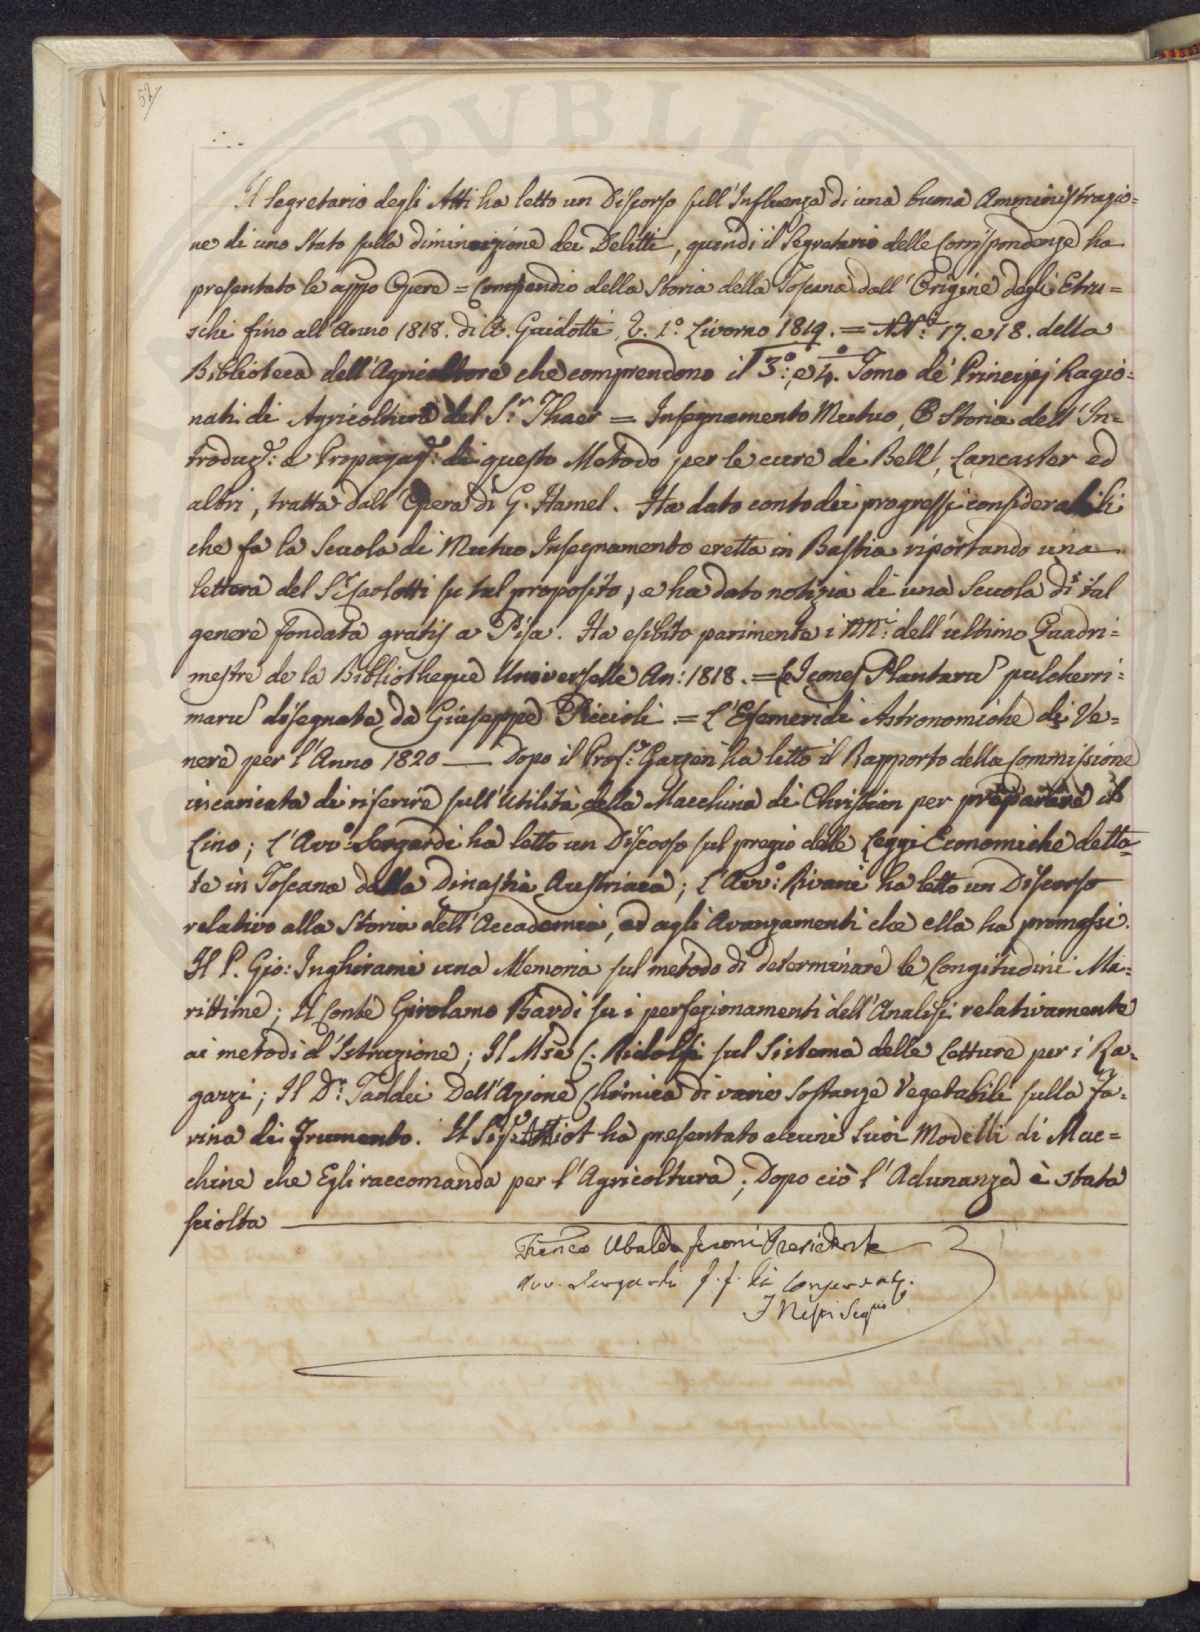 52
PVBLIC
Il Segretario degli Atti ha letto un Discorso sull'Influenza di una buona Amministrazio=
ne di uno Stato sulla diminuizione dei Delitti, quindi il Segretario delle Corrispondenze ha
presentato le app.o Opere = Compendio della Storia della Toscana dall'Origine degli Etru=
schi fino all'Anno 1818. di A. Guidotti T. 1.o Livorno 1819. = NN.i 17. e 18. della
Biblioteca dell'Agricoltore che comprendono il 3.o e 4.o Tomo de' Principj Ragio=
nati di Agricoltura del S.r Thaer = Insegnamento Mutuo, O Storia dell'In=
troduz.e: e Propagaz.e: di questo Metodo per le cure di Bell', Lancaster ed
altri, tratta dall'Opera di G. Hamel. Ha dato conto dei progressi considerabili
che fa la Scuola di Mutuo Insegnamento eretta in Bastia riportando una
lettera del S.r Carlotti su tal proposito, e ha dato notizia di una Scuola di tal
genere fondata gratis a Pisa. Ha esibito parimente i NN.i: dell'ultimo Quadri=
mestre de la Bibliotheque Universelle An: 1818. = Le Icones Plantaru pulcherri=
maru disegnate da Giuseppe Riccioli = L'Efemeridi Astronomiche di Ve=
nere per l'Anno 1820 — Dopo il Prof.e: Gazzeri ha letto il Rapporto della Commissione
incaricata di riferire sull'Utilità della Macchina di Christian per preparare il
Lino; L'Avv.o: Sergardi ha letto un Discorso sul pregio delle Leggi Economiche detta=
te in Toscana dalla Dinastia Austriaca; L'Avv.o: Rivani ha letto un Discorso
relativo alla Storia dell'Accademia, ed agli Avanzamenti che ella ha promossi.
Il P. Gio: Inghirami una Memoria sul metodo di determinare le Longitudini Ma=
rittime; Il Conte Girolamo Bardi su i perfezionamenti dell'Analisi relativamente
ai metodi d'Istruzione; Il Mse C. Ridolfi sul Sistema delle Letture per i Ra=
gazzi; Il D.r: Taddei Dell'Azione Chimica di varie Sostanze Vegetabili sulla Fa=
rina di Frumento. Il Sig.e: Attiot ha presentato alcuni Suoi Modelli di Mac=
chine che Egli raccomanda per l'Agricoltura; Dopo ciò l'Adunanza è stata
sciolta
Ubaldo Feroni Presidente
Avv. Sergardi f. f. di Conservat.
Nespi Seg.rio